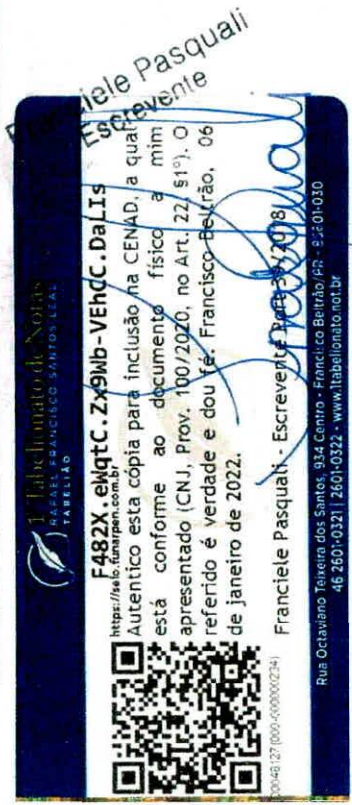 Franciele Pasquali
Escrevente
1º Tabelionato de Notas
RAFAEL FRANCISCO SANTOS LEAL
TABELIÃO
F482X.eWqtC.Zx9Wb-VEhdC.DaLIs
https://selo.funarpen.com.br
Autentico esta cópia para inclusão na CENAD, a qual
está conforme ao documento físico a mim
apresentado (CNJ, Prov. 100/2020, no Art. 22, §1º). O
referido é verdade e dou fé. Francisco Beltrão, 06
de janeiro de 2022.
Franciele Pasquali - Escrevente Port 39/2018
0046127 [000-000000234]
Rua Octaviano Teixeira dos Santos, 934 Centro - Francisco Beltrão/PR - 85601-030
46 2601-0321 | 2601-0322 - www.1tabelionato.not.br